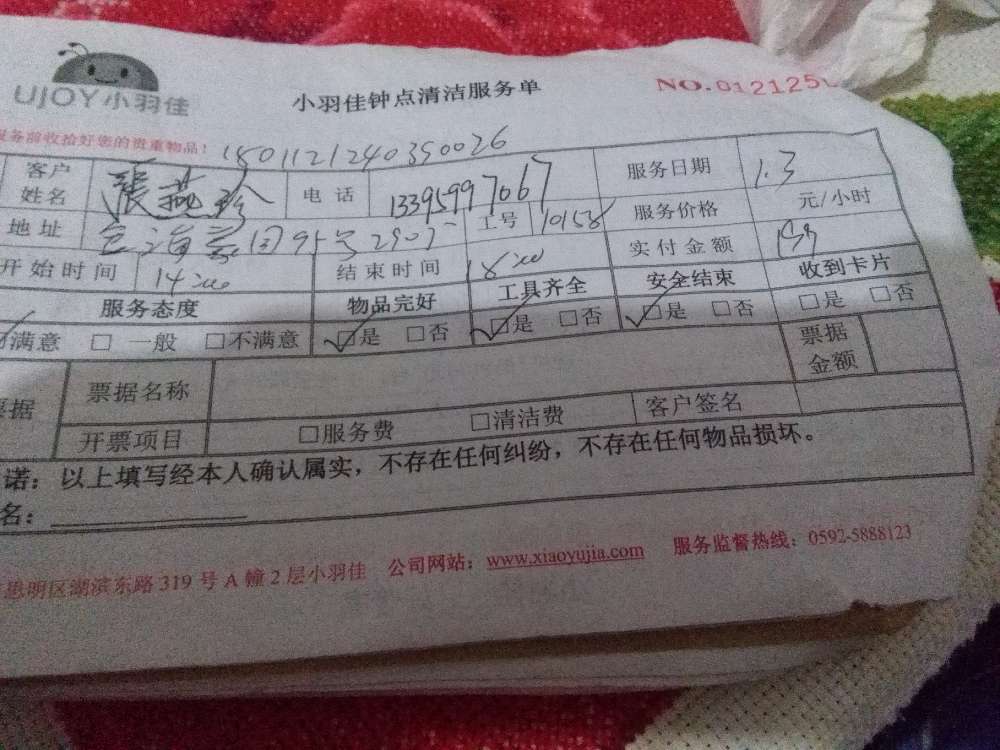 UJOY小羽佳
小羽佳钟点清洁服务单
NO.012125
务前收拾好您的贵重物品！
1801121240350026
客户姓名 張燕珍 电话 13395997067 服务日期 1.3
地址 95号 工号 10158 服务价格 元/小时
开始时间 14:00 结束时间 18:00 实付金额
服务态度 物品完好 工具齐全 安全结束 收到卡片
满意 □ 一般 □不满意 □是 □否 □是 □否 □是 □否 □是 □否
票据名称 票据金额
据 开票项目 □服务费 □清洁费 客户签名
诺：以上填写经本人确认属实，不存在任何纠纷，不存在任何物品损坏。
名：
思明区湖滨东路 319 号 A 幢 2 层小羽佳 公司网站：www.xiaoyujia.com 服务监督热线：0592-5888123